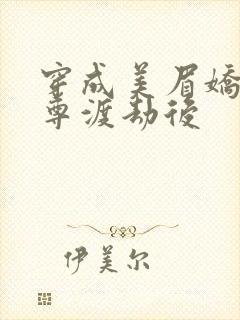 穿成美眉嬌
尊渡劫後
伊美尔